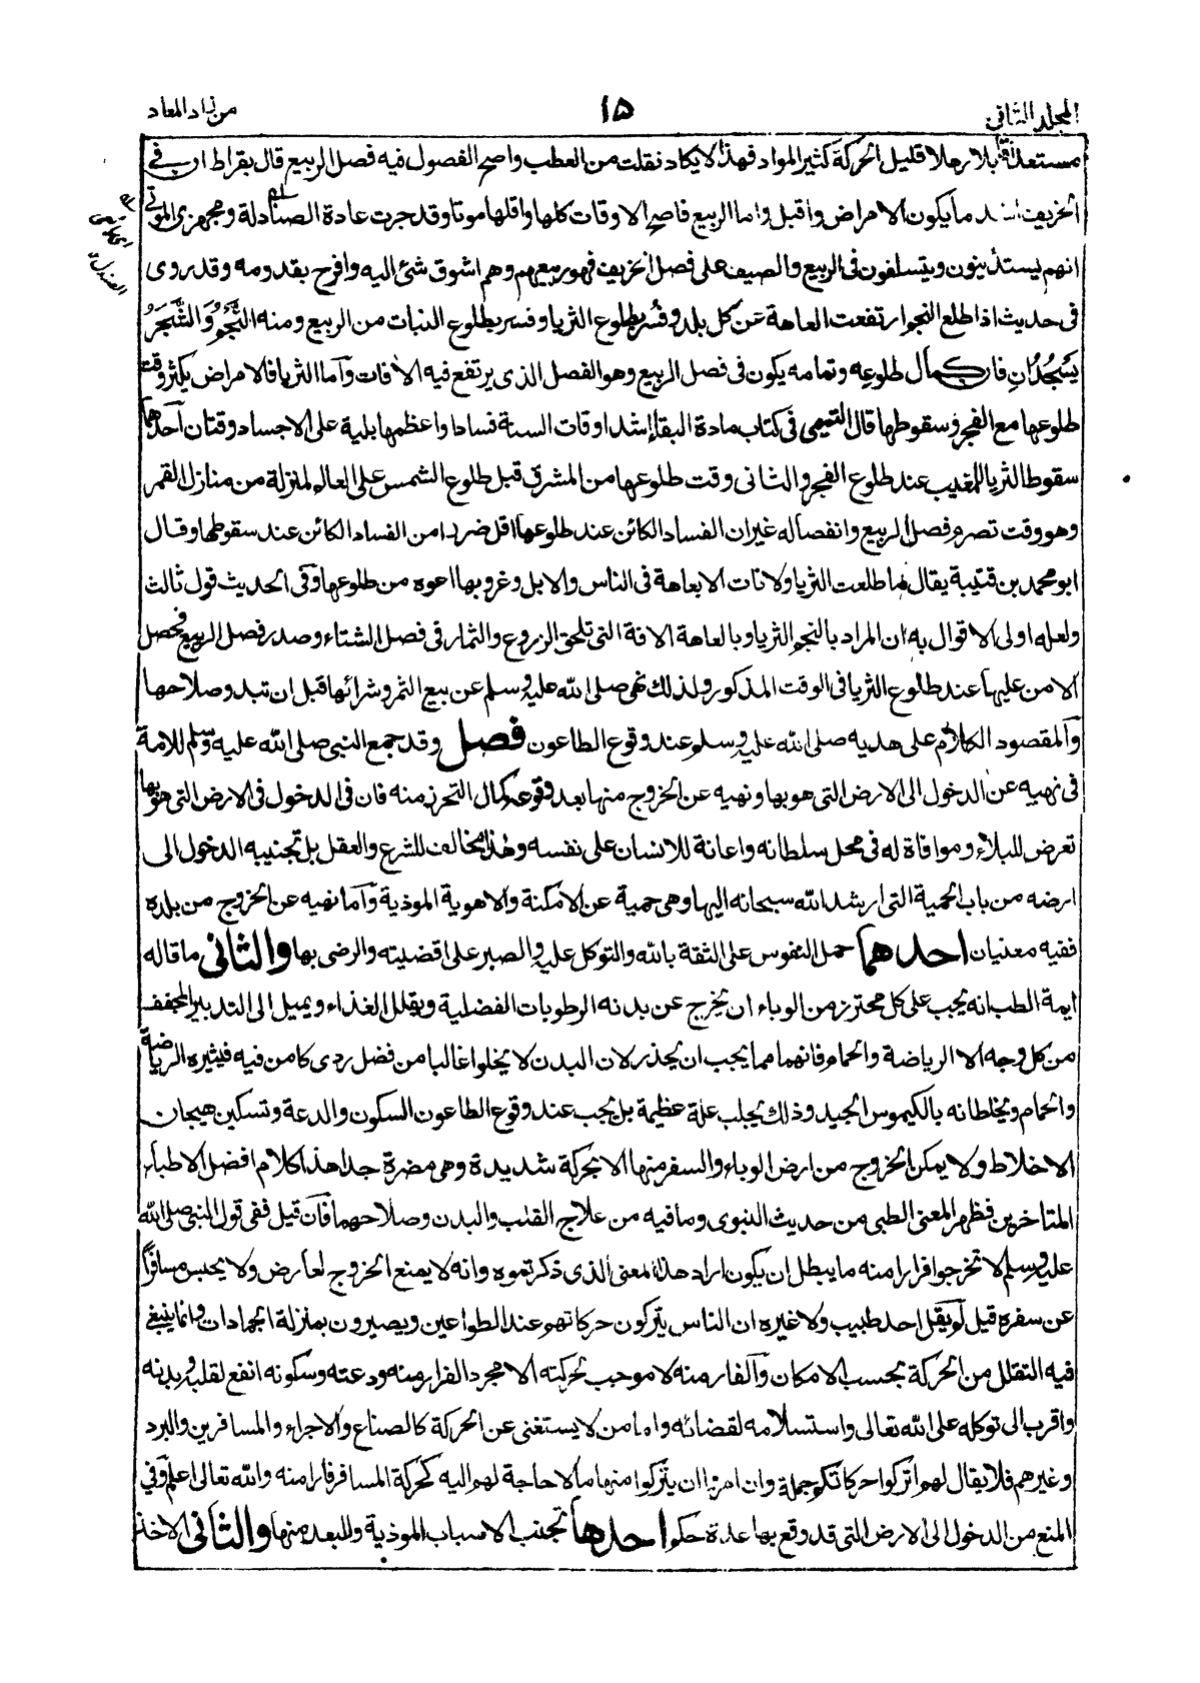 المجلد الثاني
١٥
من زاد المعاد
مستعدلاقى بدنا رهلا قليل الحركة كثير المواد فهذا لا يكاد نفلت من العطب واصح الفصول فيه فصل الربيع قال بقراط ان في
الخريف اشد ما يكون الامراض واقبل واما الربيع فاصح الاوقات كلها واقلها موتا وقد جرت عادة الصنادلة ومجهزى الموتى
انهم يستدينون ويتسلفون فى الربيع والصيف على فصل الخريف فهو ربيعهم وهم اشوق شئ اليه وافرح بقدومه وقد روى
فى حديث اذا طلع النجم ارتفعت العاهة عن كل بلد وفسر بطلوع الثريا وفسر بطلوع النبات من الربيع ومنه النَّجْمُ وَالشَّجَرُ
يَسْجُدَانِ فان كمال طلوعه وتمامه يكون فى فصل الربيع وهو الفصل الذى يرتفع فيه الأفات وآما الثريا فالامراض يكثر وقت
طلوعها مع الفجر وسقوطها قال التميمى فى كتاب مادة البقاء اشد اوقات السنة فسادا واعظمها بلية على الاجساد وقتان آحدهما
سقوط الثريا للمغيب عند طلوع الفجر والثانى وقت طلوعها من المشرق قبل طلوع الشمس على العالم لمنزلة من منازل القمر
وهو وقت تصرم فصل الربيع وانفصاله غير ان الفساد الكائن عند طلوعها اقل ضررا من الفساد الكائن عند سقوطها وقال
ابو محمد بن قتيبة يقال ما طلعت الثريا ولا نات الا بعاهة فى الناس والابل وغروبها اعوه من طلوعها وفى الحديث قول ثالث
ولعله اولى الاقوال به ان المراد بالنجم الثريا وبالعاهة الافة التى تلحق الزروع والثمار فى فصل الشتاء وصدر فصل الربيع فحصل
الامن عليها عند طلوع الثريا فى الوقت المذكور ولذلك نهى صلى الله عليه وسلم عن بيع الثمر وشرائها قبل ان تبدو صلاحها
وآلمقصود الكلام على هديه صلى الله عليه وسلم عند وقوع الطاعون فصل وقد جمع النبى صلى الله عليه وسلم للامة
فى نهيه عن الدخول الى الارض التى هو بها ونهيه عن الخروج منها بعد وقوعه كمال التحرز منه فان فى الدخول فى الارض التى هو بها
تعرض للبلاء وموافاة له فى محل سلطانه واعانة للانسان على نفسه وهذا مخالف للشرع والعقل بل تجنيبه الدخول الى
ارضه من باب الحمية التى ارشد الله سبحانه اليها وهى حمية عن الامكنة والاهوية الموذية وآما نهيه عن الخروج من بلده
ففيه معنيان احدهما حمل النفوس على الثقة بالله والتوكل عليه والصبر على اقضيته والرضى بها والثانى ما قاله
ايمة الطب انه يجب على كل محترز من الوباء ان يخرج عن بدنه الرطوبات الفضلية ويقلل الغذاء ويميل الى التدبير المجفف
من كل وجه الا الرياضة والحمام فانهما مما يجب ان يحذر لان البدن لا يخلوا غالبا من فضل ردى كامن فيه فيثيره الرياضة
والحمام ويخلطانه بالكيموس الجيد وذلك يجلب علة عظيمة بل يجب عند وقوع الطاعون السكون والدعة وتسكين هيجان
الاخلاط ولا يمكن الخروج من ارض الوباء والسفر منها الا بحركة شديدة وهى مضرة جدا هذا كلام افضل الاطباء
المتاخرين فظهر المعنى الطبى من حديث النبوى وما فيه من علاج القلب والبدن وصلاحهما فآن قيل ففى قول النبى صلى الله
عليه وسلم لا تخرجوا فرارا منه ما يبطل ان يكون اراد هذا المعنى الذى ذكرتموه وانه لا يمنع الخروج لعارض ولا يحبس مسافرًا
عن سفره قيل لم يقل احد طبيب ولا غيره ان الناس يتركون حركاتهم عند الطواعين ويصيرون بمنزلة الجمادات وانما ينبغى
فيه التقلل من الحركة بحسب الامكان وآلفار منه لا موجب لحركته الا مجرد الفرار منه ودعته وسكونه انفع لقلبه وبدنه
واقرب الى توكله على الله تعالى واستسلامه لقضائه واما من لا يستغنى عن الحركة كالصناع والاجراء والمسافرين والبرد
وغيرهم فلا يقال لهم اتركوا حركاتكم جملة وان امروا ان يتركوا منها ما لا حاجة لهم اليه كحركة المسافر فارا منه والله تعالى اعلم وفي
المنع من الدخول الى الارض التى قد وقع بها عدة حكم احدها تجنب الاسباب الموذية والبعد منها والثانى الاخذ